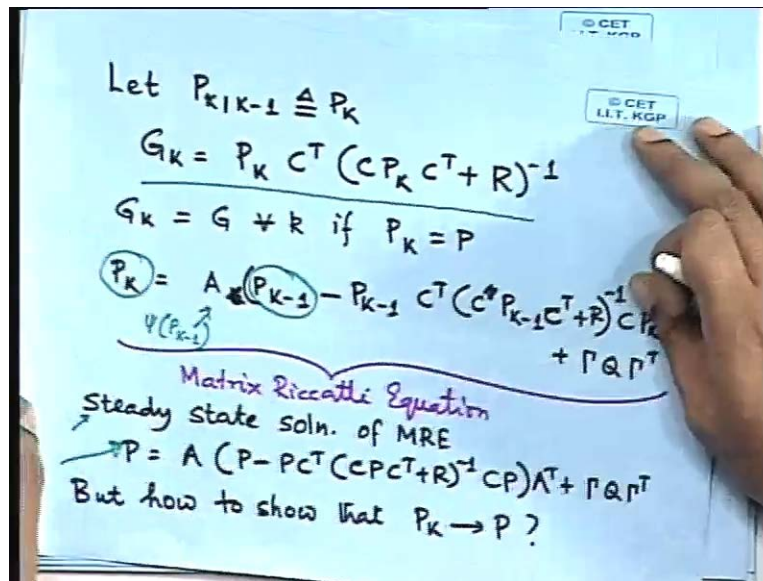 © CET
I.I.T. KGP
© CET
I.I.T. KGP
Let P_{K|K-1} ≜ P_K
G_K = P_K C^T (C P_K C^T + R)^{-1}
G_K = G ∀ k if P_K = P
P_K = A (P_{K-1} - P_{K-1} C^T (C P_{K-1} C^T + R)^{-1} C P
Ψ(P_{K-1})
+ Γ Q Γ^T
Matrix Riccatti Equation
Steady state soln. of MRE
P = A (P - PC^T (CPC^T + R)^{-1} CP) A^T + Γ Q Γ^T
But how to show that P_K → P ?